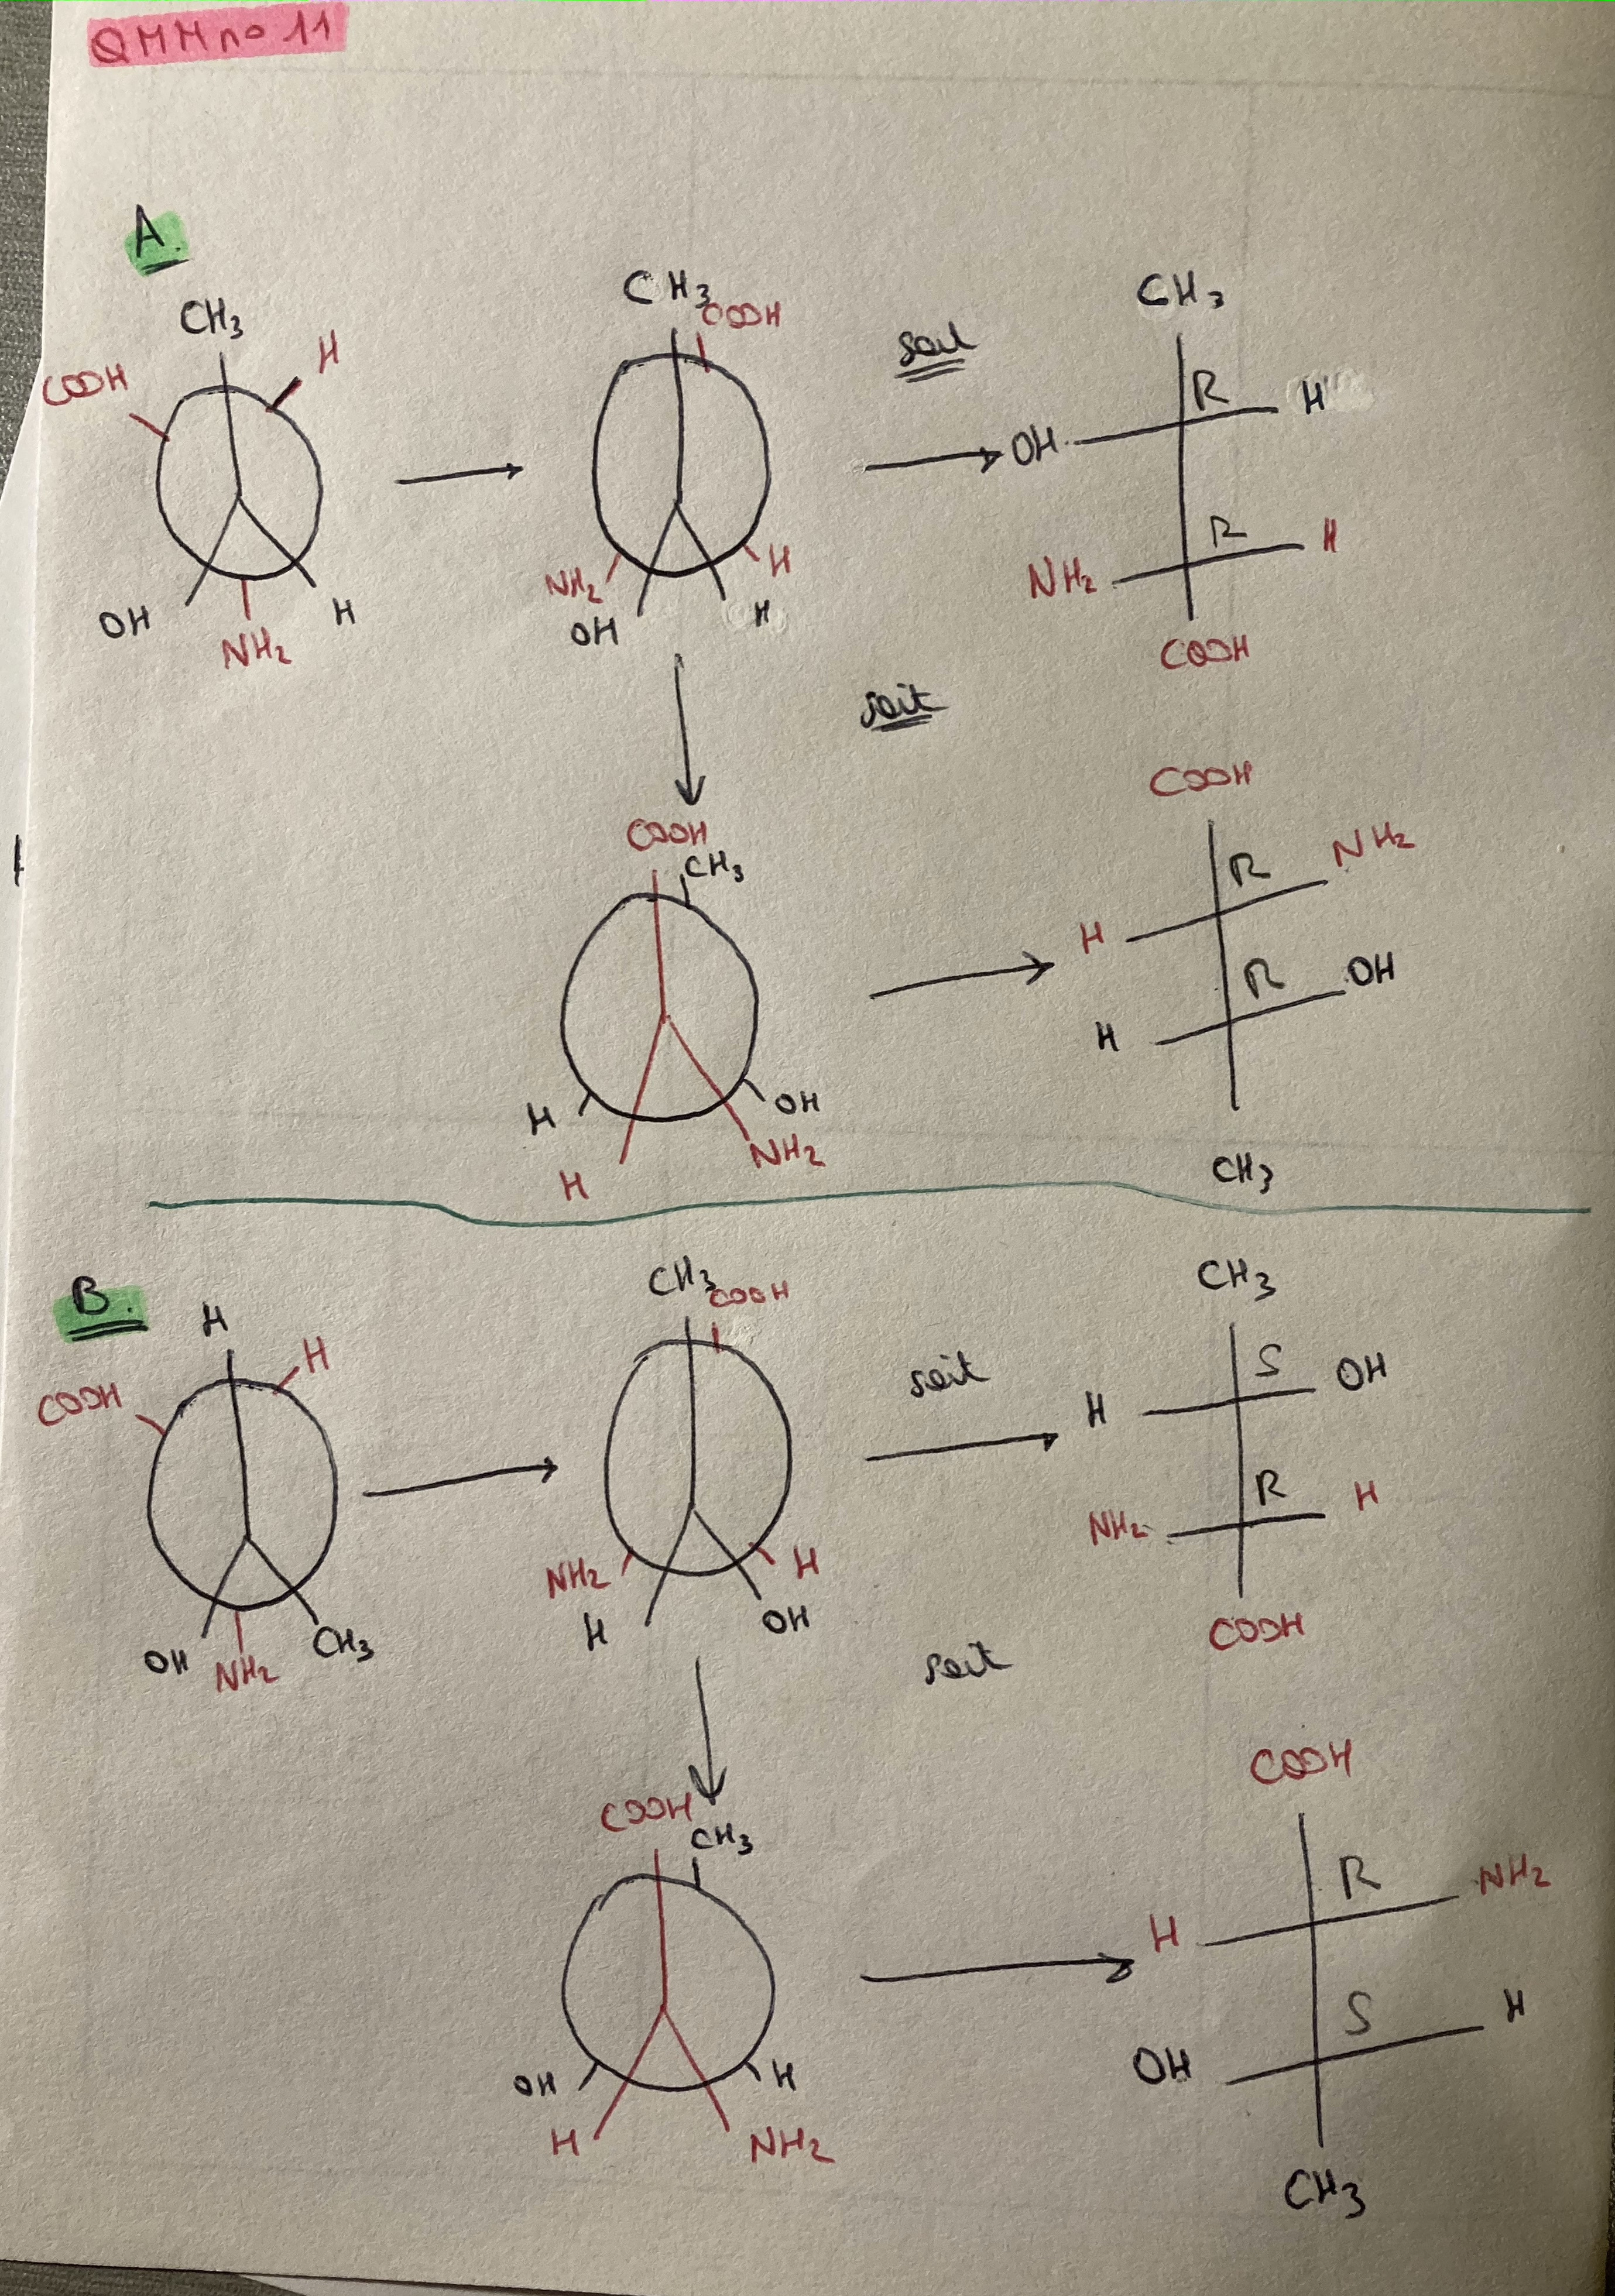 QMM no 11
A.
CH3
COOH
H
OH
NH2
H
CH3
COOH
NH2
OH
H
H
soit
CH3
R
H
OH
R
H
NH2
COOH
soit
COOH
CH3
H
OH
H
NH2
COOH
R
NH2
H
R
OH
H
CH3
B.
H
H
COOH
OH
NH2
CH3
CH3
COOH
NH2
H
H
OH
soit
CH3
S
OH
H
R
H
NH2
COOH
soit
COOH
CH3
OH
H
H
NH2
COOH
R
NH2
H
S
H
OH
CH3